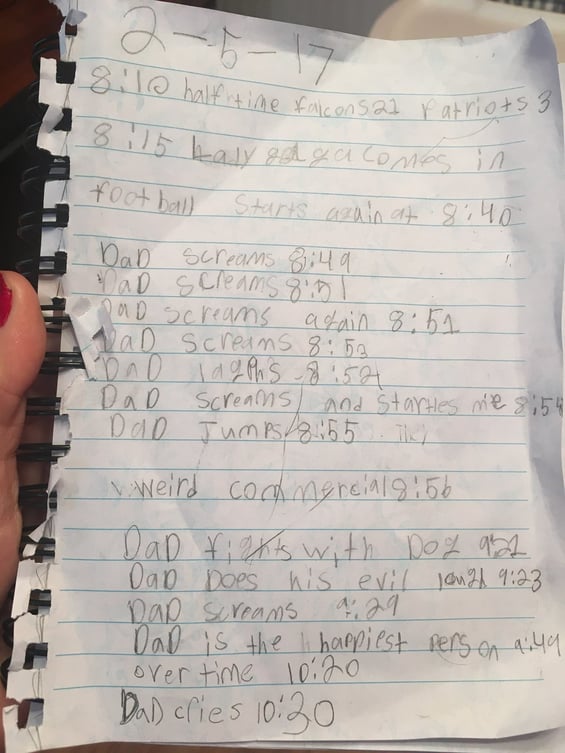 2-5-17
8:10 halftime falcons 21 Patriots 3
8:15 Lady gaga comes in
football starts again at 8:40
DaD screams 8:49
DaD screams 8:51
DaD screams again 8:51
DaD screams 8:53
DaD laghs 8:54
DaD screams and startles me 8:54
DaD Jumps 8:55
weird commercial 8:56
DaD fights with Dog 9:21
DaD Does his evil 9:23
DaD screams 9:29
DaD is the happiest person 9:49
over time 10:20
DaD cries 10:30